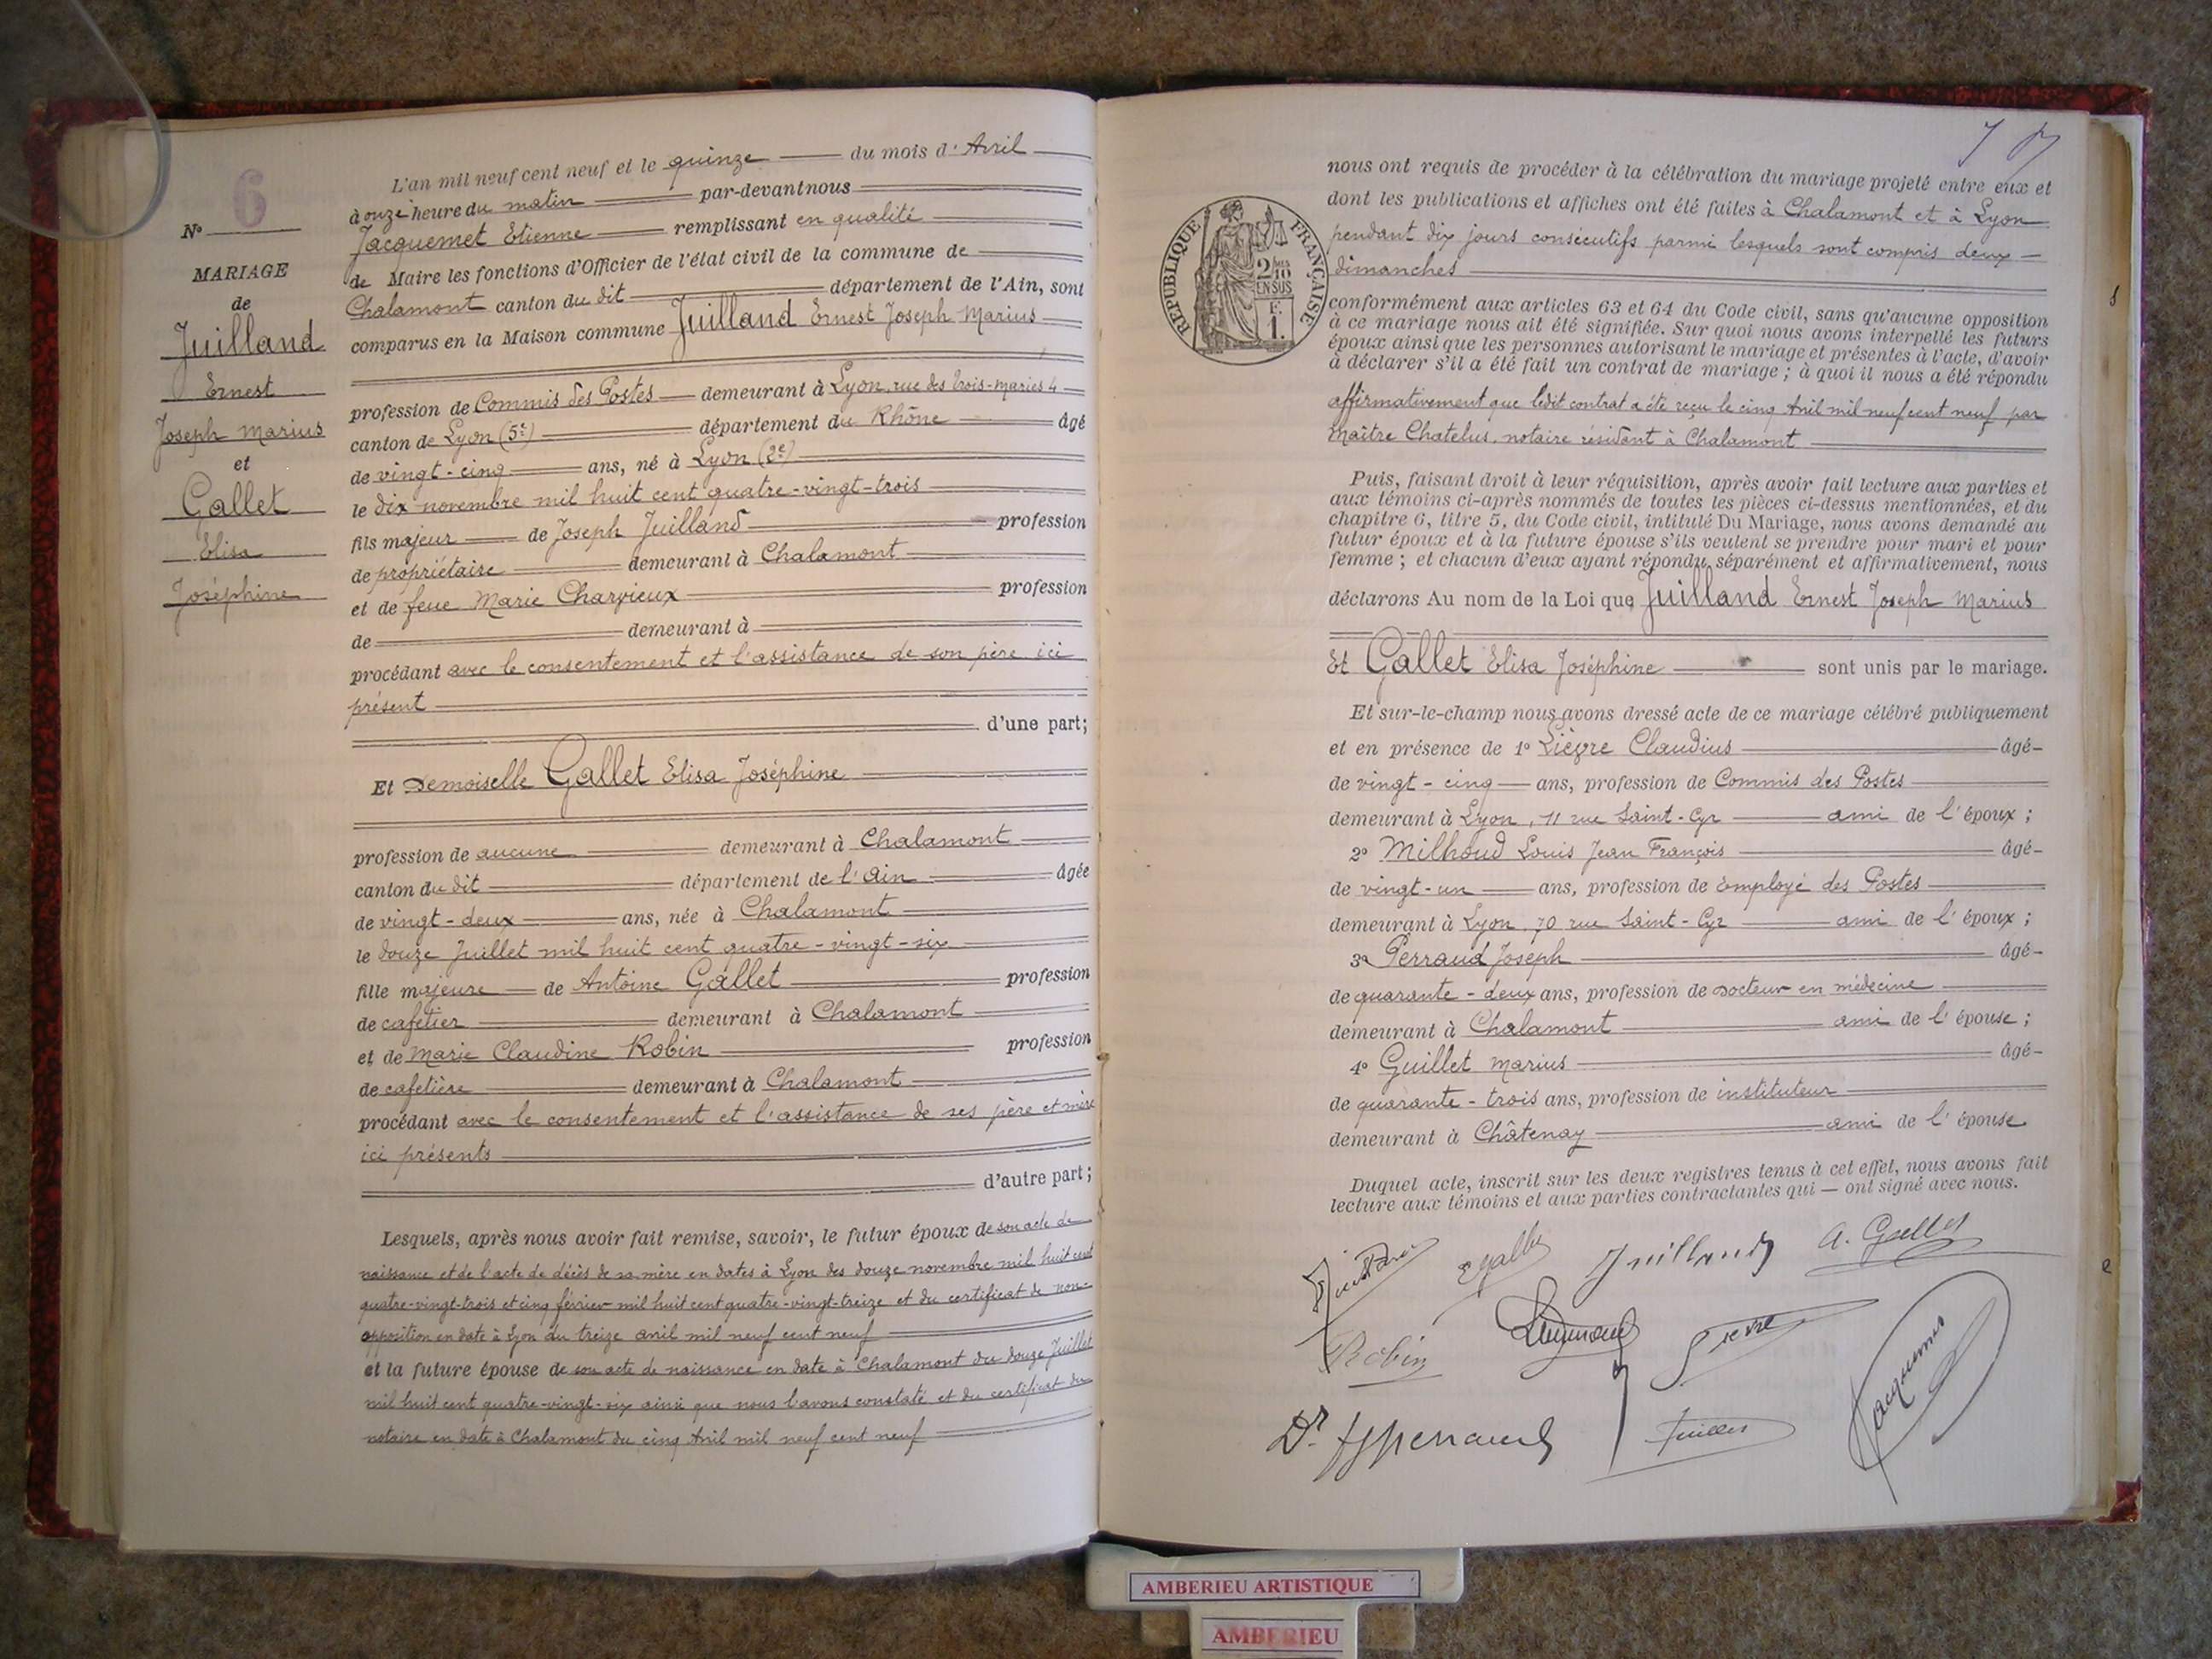 N° 6
MARIAGE
de
Juilland
Ernest
Joseph Marius
et
Gallet
Elisa
Joséphine
L'an mil neuf cent neuf et le quinze du mois d'Avril
à onze heure du matin par-devant nous
Jacquemet Etienne remplissant en qualité
de Maire les fonctions d'Officier de l'état civil de la commune de
Chalamont canton du dit département de l'Ain, sont
comparus en la Maison commune Juilland Ernest Joseph Marius
profession de Commis des Postes demeurant à Lyon, rue des Trois-Maries 4
canton de Lyon (5e) département du Rhône âgé
de vingt-cinq ans, né à Lyon (2e)
le dix novembre mil huit cent quatre-vingt-trois
fils majeur de Joseph Juilland profession
de propriétaire demeurant à Chalamont
et de feue Marie Charvieux profession
de demeurant à
procédant avec le consentement et l'assistance de son père ici
présent
d'une part;
Et Demoiselle Gallet Elisa Joséphine
profession de aucune demeurant à Chalamont
canton du dit département de l'Ain âgée
de vingt-deux ans, née à Chalamont
le douze Juillet mil huit cent quatre-vingt-six
fille majeure de Antoine Gallet profession
de cafetier demeurant à Chalamont
et de Marie Claudine Robin profession
de cafetière demeurant à Chalamont
procédant avec le consentement et l'assistance de ses père et mère
ici présents
d'autre part;
Lesquels, après nous avoir fait remise, savoir, le futur époux de son acte de
naissance et de l'acte de décès de sa mère en dates à Lyon des douze novembre mil huit cent
quatre-vingt-trois et cinq février mil huit cent quatre-vingt-treize et du certificat de non-
opposition en date à Lyon du treize avril mil neuf cent neuf
et la future épouse de son acte de naissance en date à Chalamont du douze Juillet
mil huit cent quatre-vingt-six ainsi que nous l'avons constaté et du certificat du
notaire en date à Chalamont du cinq Avril mil neuf cent neuf
REPUBLIQUE FRANÇAISE
2/10 EN SUS
F. 1.
nous ont requis de procéder à la célébration du mariage projeté entre eux et
dont les publications et affiches ont été faites à Chalamont et à Lyon
pendant dix jours consécutifs parmi lesquels sont compris deux
dimanches
conformément aux articles 63 et 64 du Code civil, sans qu'aucune opposition
à ce mariage nous ait été signifiée. Sur quoi nous avons interpellé les futurs
époux ainsi que les personnes autorisant le mariage et présentes à l'acte, d'avoir
à déclarer s'il a été fait un contrat de mariage; à quoi il nous a été répondu
affirmativement que ledit contrat a été reçu le cinq Avril mil neuf cent neuf par
Maître Chatelus, notaire résidant à Chalamont
Puis, faisant droit à leur réquisition, après avoir fait lecture aux parties et
aux témoins ci-après nommés de toutes les pièces ci-dessus mentionnées, et du
chapitre 6, titre 5, du Code civil, intitulé Du Mariage, nous avons demandé au
futur époux et à la future épouse s'ils veulent se prendre pour mari et pour
femme; et chacun d'eux ayant répondu séparément et affirmativement, nous
déclarons Au nom de la Loi que Juilland Ernest Joseph Marius
Et Gallet Elisa Joséphine sont unis par le mariage.
Et sur-le-champ nous avons dressé acte de ce mariage célébré publiquement
et en présence de 1° Lièvre Claudius âgé
de vingt-cinq ans, profession de Commis des Postes
demeurant à Lyon, 11 rue Saint-Cyr ami de l'époux;
2° Milhoud Louis Jean François âgé
de vingt-un ans, profession de Employé des Postes
demeurant à Lyon, 70 rue Saint-Cyr ami de l'époux;
3° Perraud Joseph âgé
de quarante-deux ans, profession de Docteur en médecine
demeurant à Chalamont ami de l'épouse;
4° Guillet Marius âgé
de quarante-trois ans, profession de instituteur
demeurant à Châtenay ami de l'épouse
Duquel acte, inscrit sur les deux registres tenus à cet effet, nous avons fait
lecture aux témoins et aux parties contractantes qui — ont signé avec nous.
Juilland A. Gallet
Robin
Jacquemet
AMBERIEU ARTISTIQUE
AMBERIEU